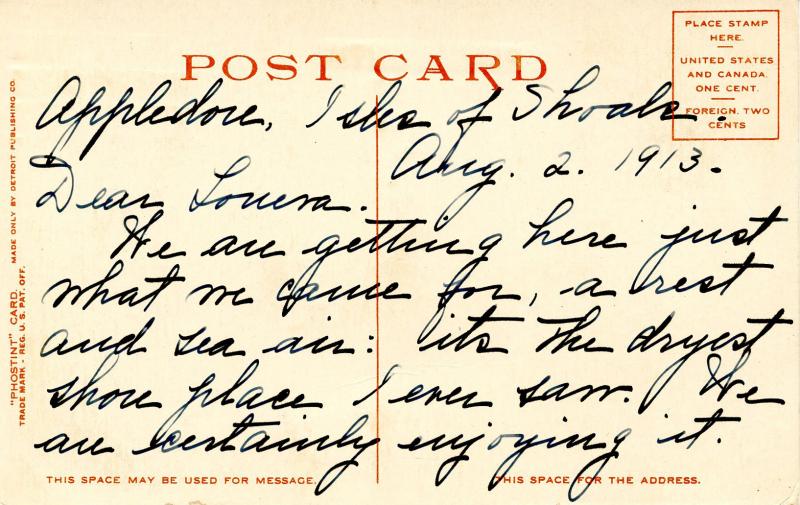 POST CARD
PLACE STAMP
HERE.
UNITED STATES
AND CANADA.
ONE CENT.
FOREIGN, TWO
CENTS
Appledore, Isles of Shoals.
Aug. 2. 1913.
Dear Louera.
We are getting here just
what we came for, a rest
and sea air: its the dryest
shore place I ever saw. We
are certainly enjoying it.
THIS SPACE MAY BE USED FOR MESSAGE.
THIS SPACE FOR THE ADDRESS.
"PHOSTINT" CARD. MADE ONLY BY DETROIT PUBLISHING CO.
TRADE MARK - REG. U. S. PAT. OFF.